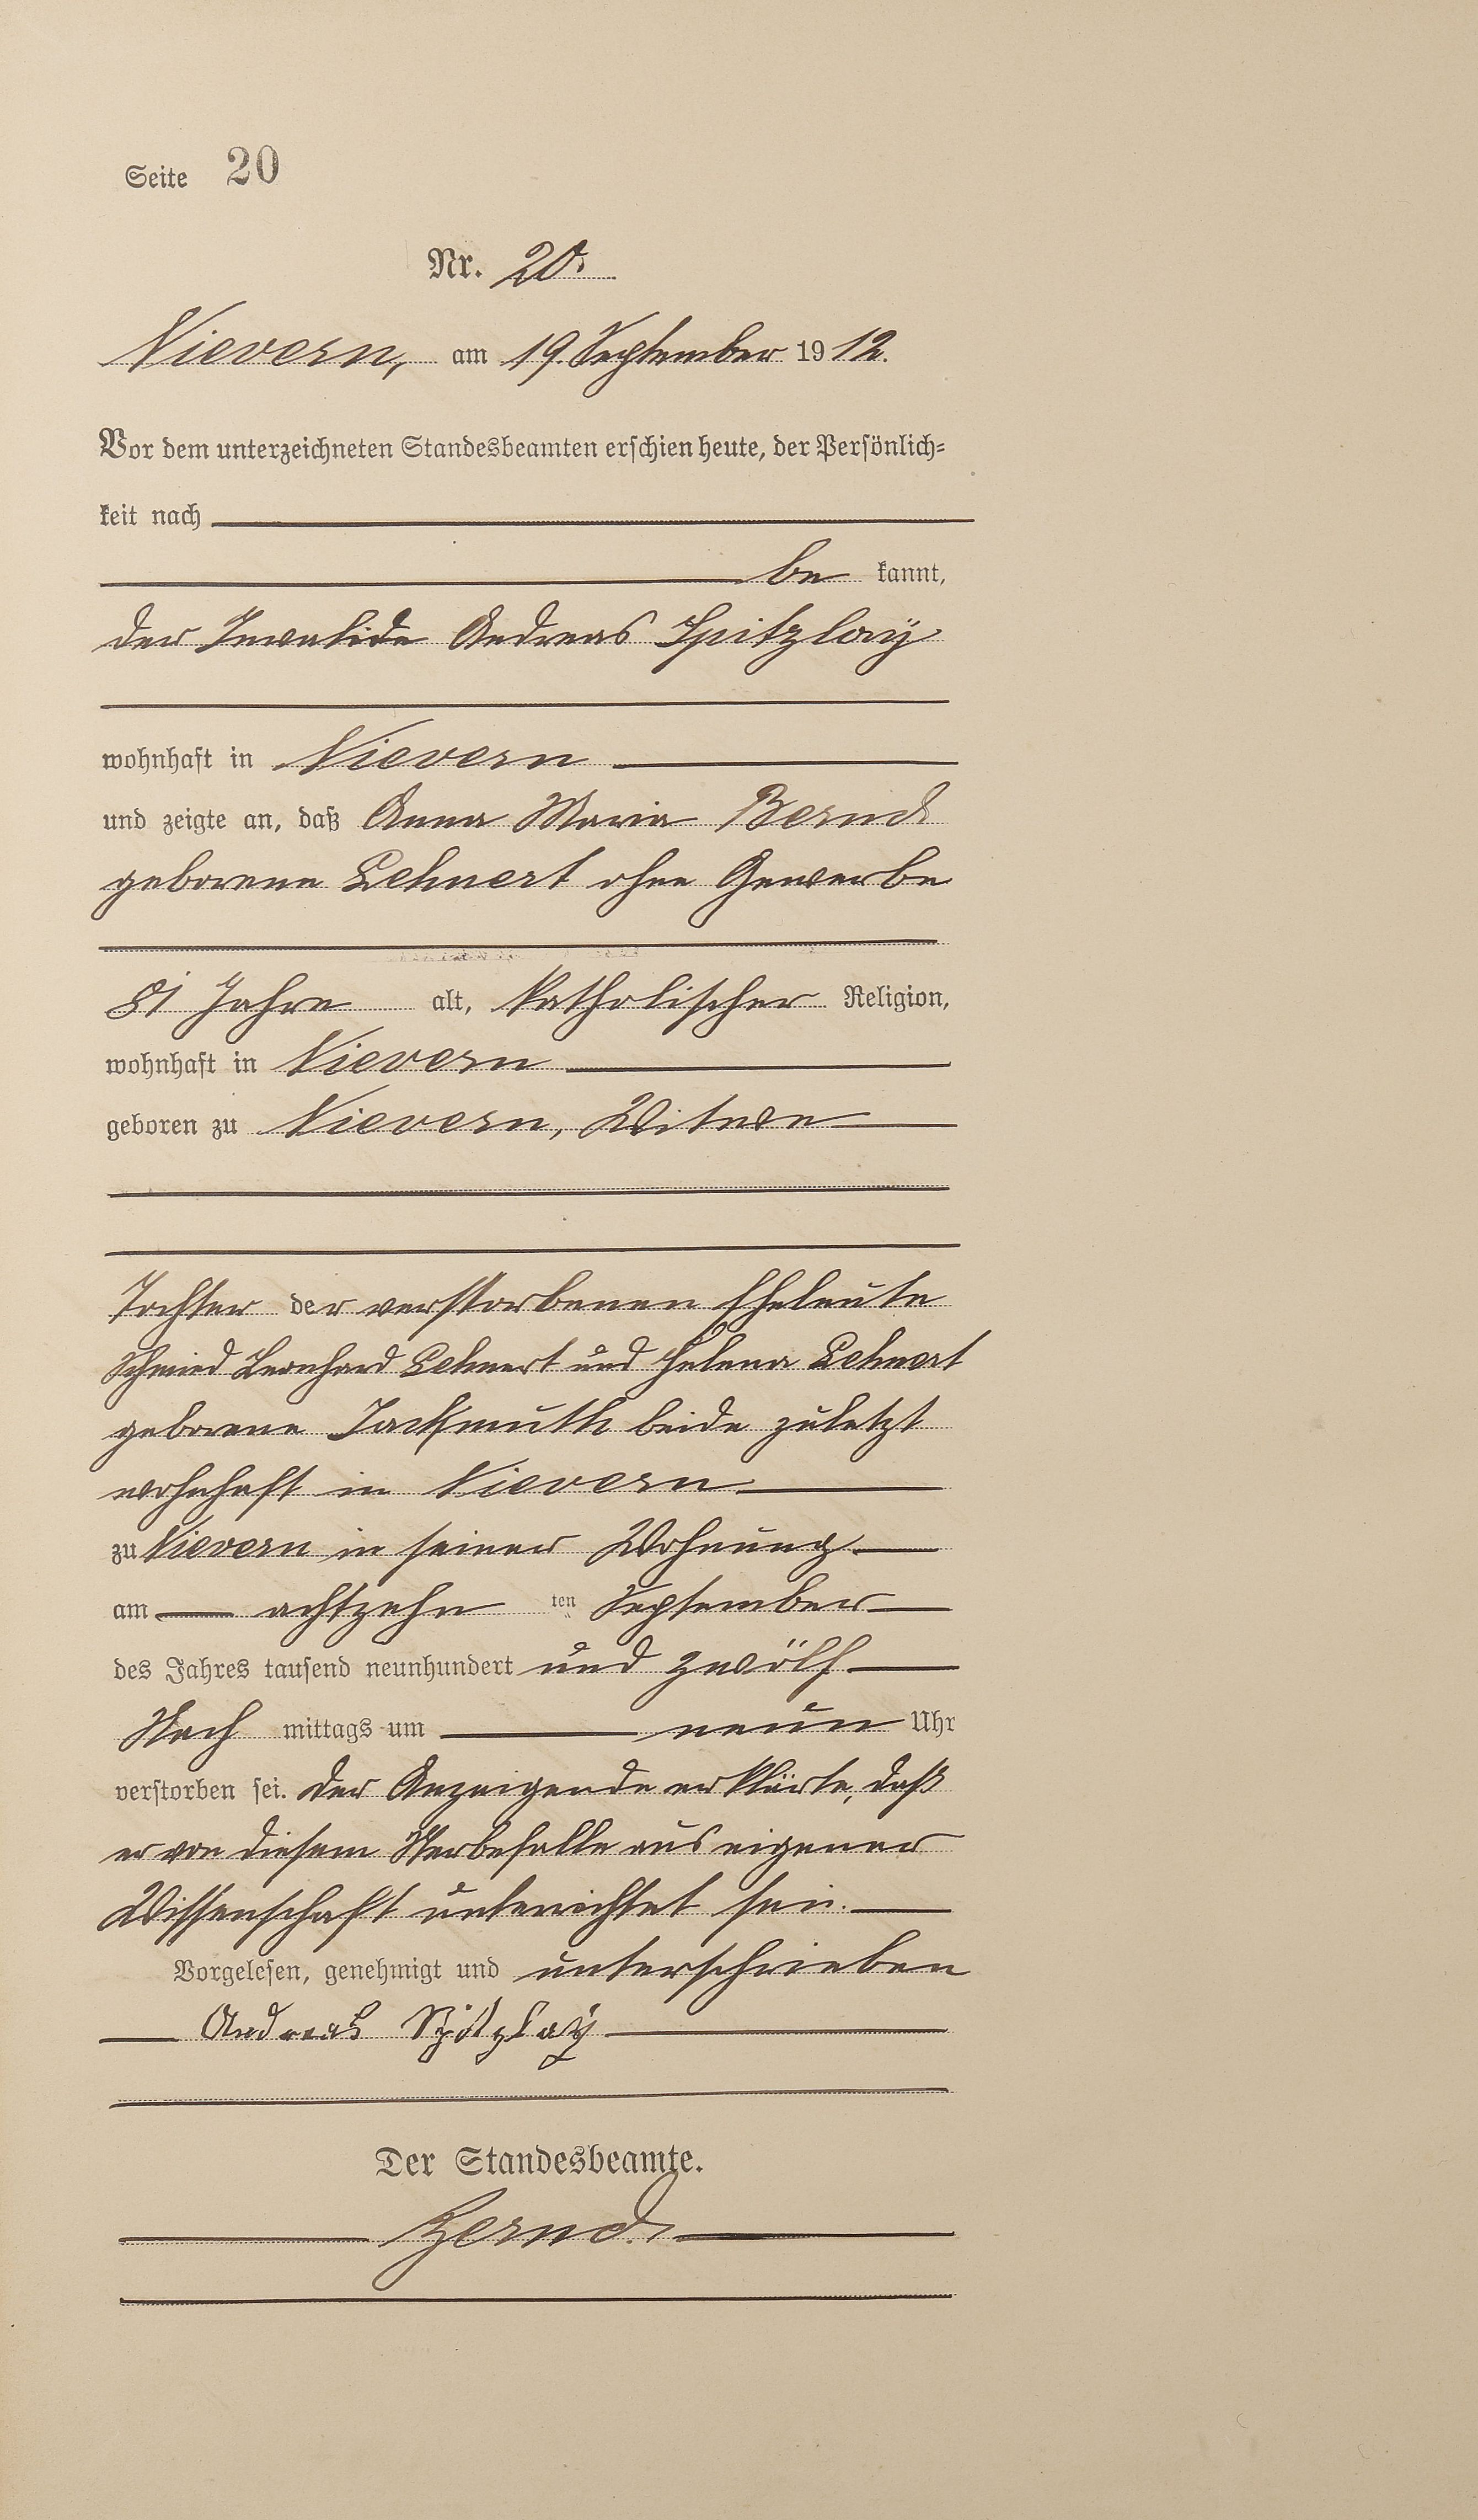 Seite 20
Nr. 20.
Nievern, am 19. September 1912.
Vor dem unterzeichneten Standesbeamten erschien heute, der Persönlich-
keit nach
be kannt,
der Invalide Andreas Spitzlay
wohnhaft in Nievern
und zeigte an, daß Anna Maria Bernd
geborene Lehnert ohne Gewerbe
81 Jahre alt, katholischer Religion,
wohnhaft in Nievern
geboren zu Nievern, Witwe
Tochter der verstorbenen Eheleute
Schmied Leonhard Lehnert und Helena Lehnert
geborene Jackmuth beide zuletzt
wohnhaft in Nievern
zu Nievern in seiner Wohnung
am achtzehn ten September
des Jahres tausend neunhundert und zwölf
Nach mittags um neun Uhr
verstorben sei. Der Anzeigende erklärte, daß
er von diesem Sterbefalle aus eigener
Wissenschaft unterrichtet sei.
Vorgelesen, genehmigt und unterschrieben
Andreas Spitzlay
Der Standesbeamte.
Bernd.